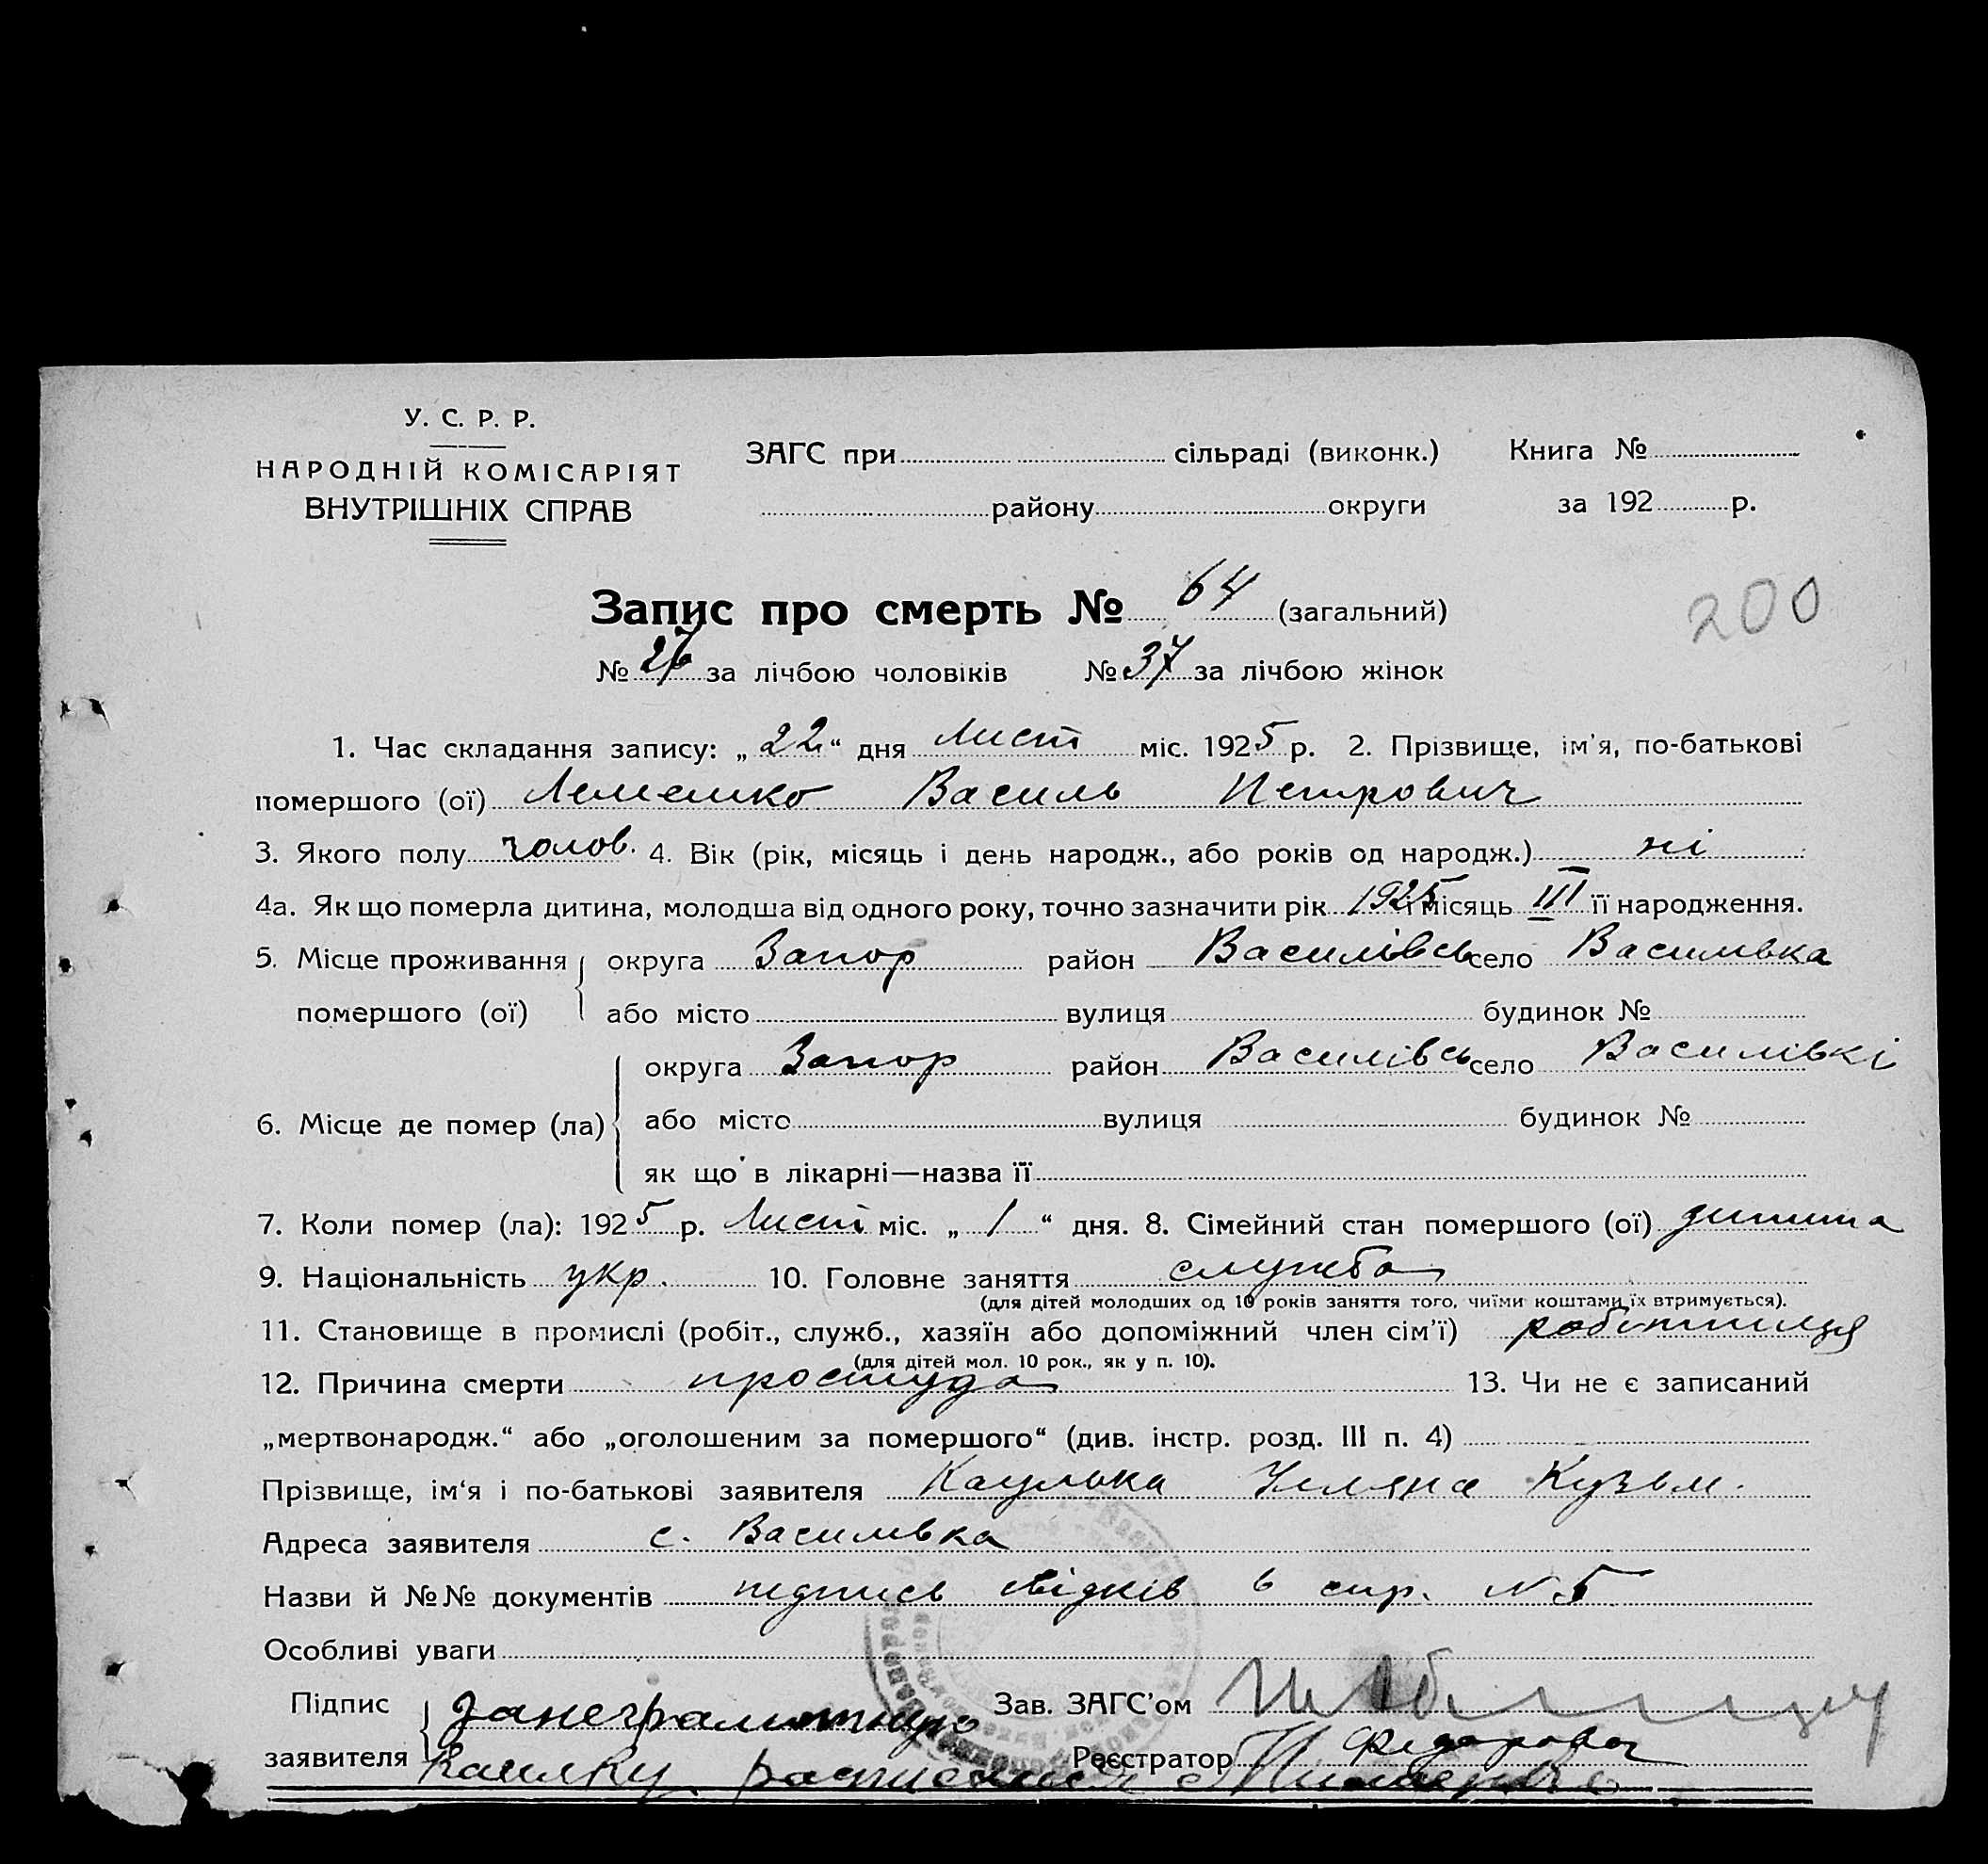 У. С. Р. Р.
НАРОДНІЙ КОМІСАРІЯТ
ВНУТРІШНІХ СПРАВ
ЗАГС при сільраді (виконк.) Книга №
району округи за 192 р.
200
Запис про смерть № 64 (загальний)
№ за лічбою чоловіків № 37 за лічбою жінок
1. Час складання запису: „22“ дня Лист міс. 1925 р. 2. Прізвище, ім'я, по-батькові
помершого (ої) Лемешко Василь Петрович
3. Якого полу чолов. 4. Вік (рік, місяць і день народж., або років од народж.) ні
4а. Як що померла дитина, молодша від одного року, точно зазначити рік 1925 і місяць III її народження.
5. Місце проживання округа Запор район Василівсь село Василівка
помершого (ої) або місто вулиця будинок №
округа Запор район Василівсь село Василівкі
6. Місце де помер (ла) або місто вулиця будинок №
як що в лікарні—назва її
7. Коли помер (ла): 1925 р. Лист міс. „1“ дня. 8. Сімейний стан помершого (ої) дитина
9. Національність укр. 10. Головне заняття служба
(для дітей молодших од 10 років заняття того, чиїми коштами їх втримується).
11. Становище в промислі (робіт., служб., хазяїн або допоміжний член сім'ї) робітниця
(для дітей мол. 10 рок., як у п. 10).
12. Причина смерти простуда 13. Чи не є записаний
„мертвонародж.“ або „оголошеним за помершого“ (див. інстр. розд. III п. 4)
Прізвище, ім'я і по-батькові заявителя Уляна Кузьм.
Адреса заявителя с. Василівка
Назви й №№ документів підпись свідків в спр. № 5
Особливі уваги
Підпис Зав. ЗАГС'ом
заявителя Реєстратор